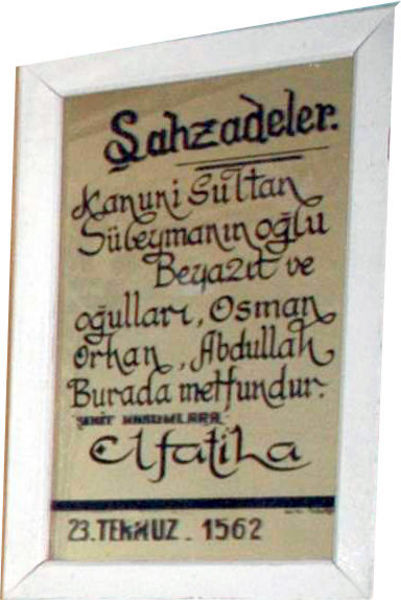 Şahzadeler.
Kanuni Sultan
Süleymanın oğlu
Beyazıt ve
oğulları, Osman
Orhan, Abdullah
Burada metfundur.
ŞEHİT MASUMLARA
Elfatiha
23.TEMMUZ - 1562